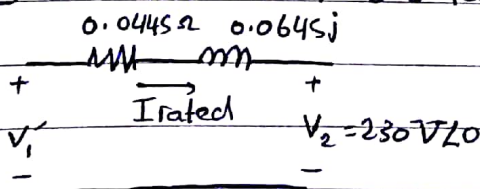 0.0445Ω 0.0645j
+ +
Irated
V₁′ V₂ = 230 V∠0
− −